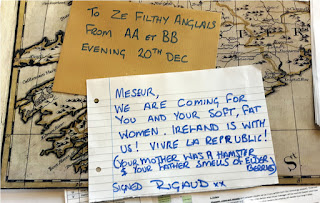 To Ze Filthy Anglais
From AA et BB
Evening 20th Dec
Meseur,
We are coming for
you and your soft, fat
women. Ireland is with
us! Vivre La Republic!
(Your mother was a hamster
& your father smells of elder
berries)
Signed Rigaud xx